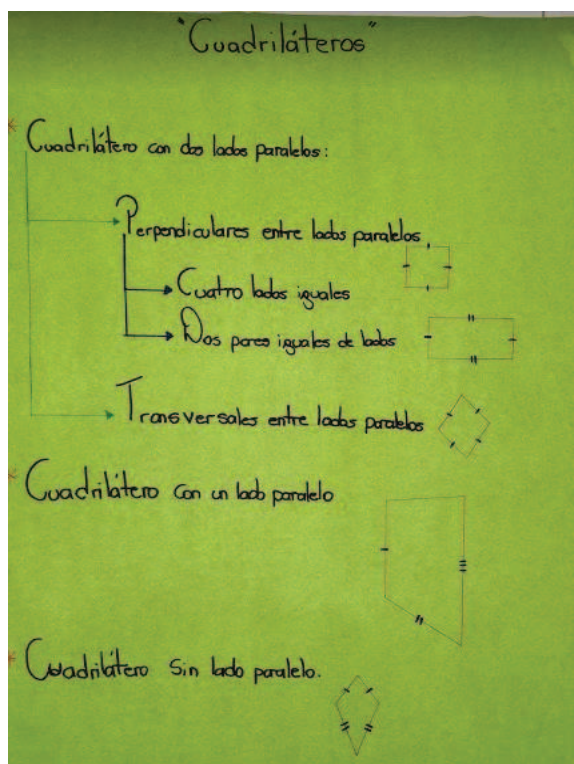 "Cuadriláteros"
* Cuadrilátero con dos lados paralelos:
Perpendiculares entre lados paralelos
Cuatro lados iguales
Dos pares iguales de lados
Transversales entre lados paralelos
* Cuadrilátero con un lado paralelo
* Cuadrilátero Sin lado paralelo.